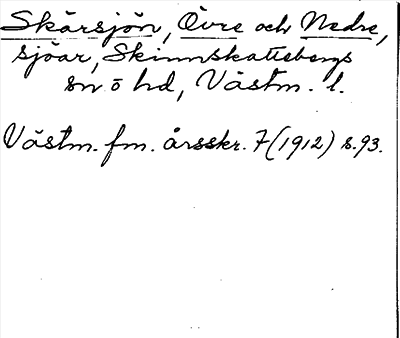 Skärsjön, Övre och Nedre,
sjöar, Skinnskattebergs
sn o hd, Västm. l.
Västm. fm. årsskr. 7 (1912) s. 93.